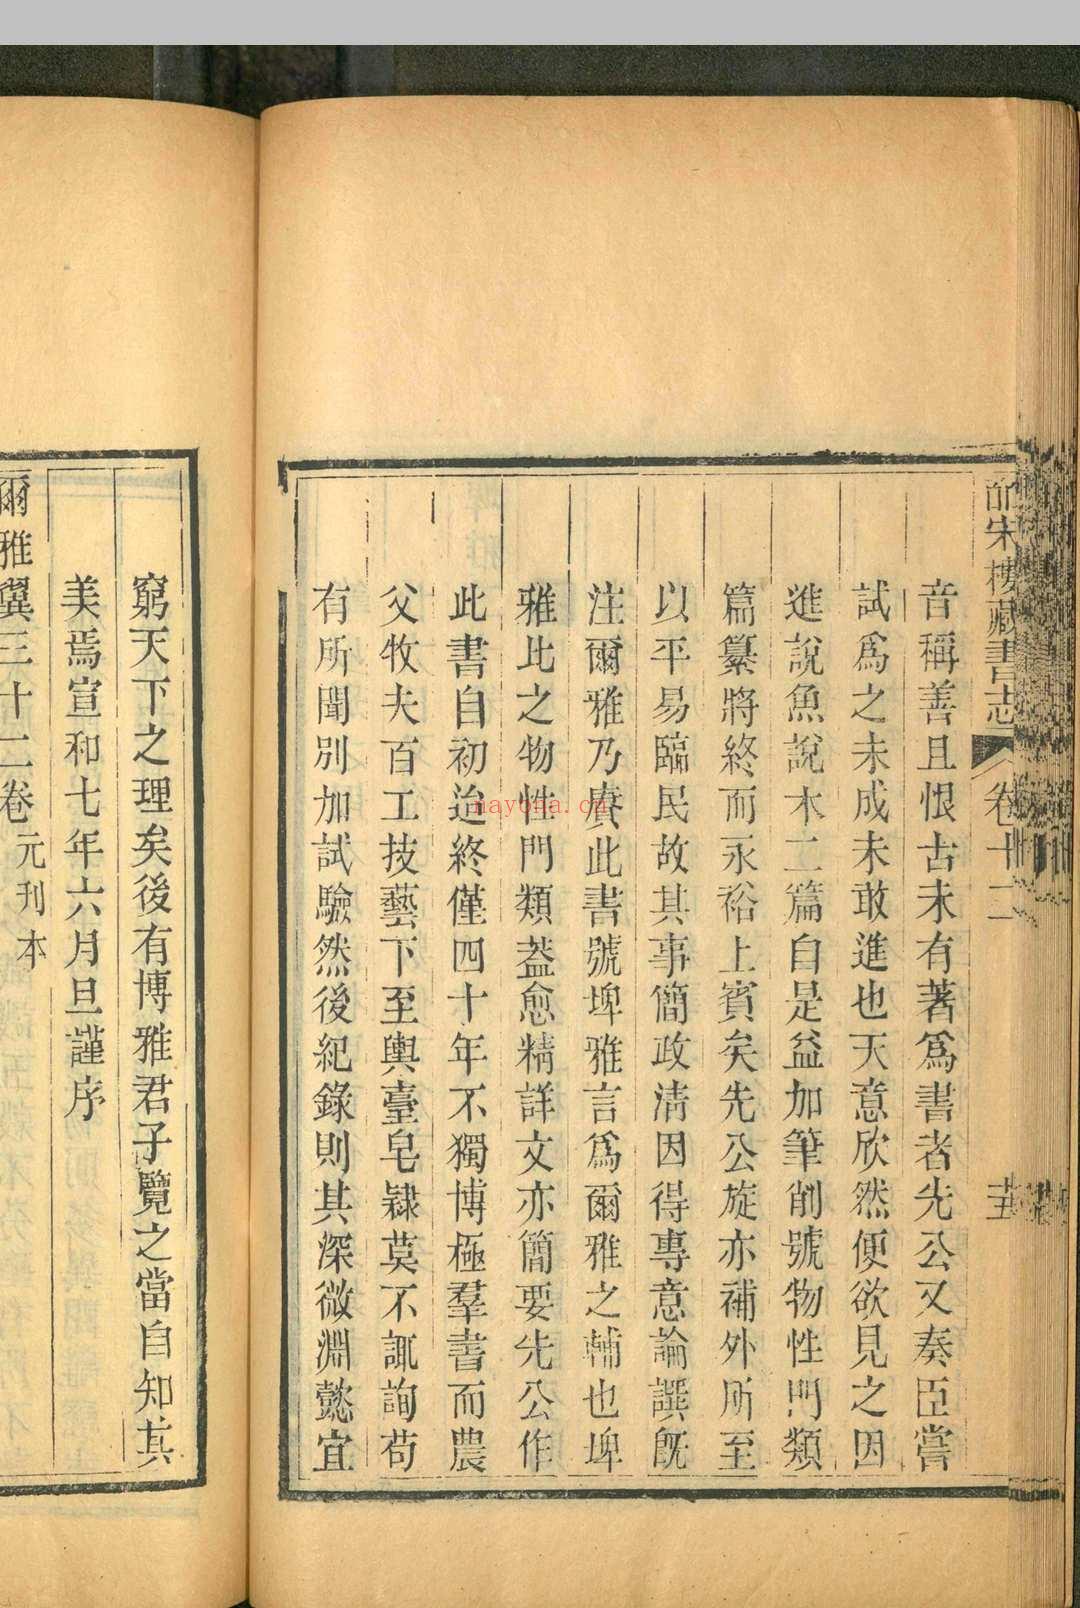 皕宋樓藏書志 卷十二
音稱善且恨古未有著爲書者先公又奏臣嘗
試爲之未成未敢進也天意欣然便欲見之因
進說魚說木二篇自是益加筆削號物性門類
篇纂將終而永裕上賓矣先公旋亦補外所至
以平易臨民故其事簡政清因得專意論譔旣
注爾雅乃賡此書號埤雅言爲爾雅之輔也埤
雅比之物性門類葢愈精詳文亦簡要先公作
此書自初迨終僅四十年不獨博極羣書而農
父牧夫百工技藝下至輿臺皂隸莫不諏詢苟
有所聞別加試驗然後紀錄則其深微淵懿宜
窮天下之理矣後有博雅君子覽之當自知其
美焉宣和七年六月旦謹序
爾雅翼三十二卷元刊本
nayona.cn